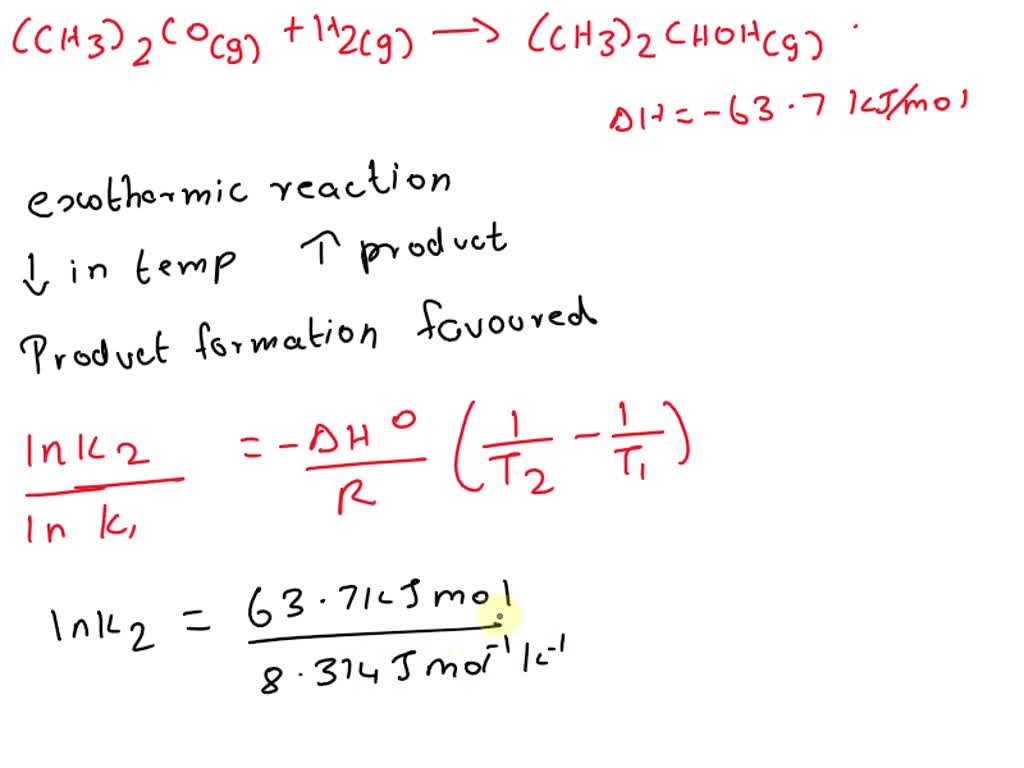 (CH3)2CO(g) + H2(g) → (CH3)2CHOH(g)
ΔH = -63.7 kJ/mol
exothermic reaction
↓ in temp ↑ product
Product formation favoured
lnk2 / ln k1 = -ΔH° / R (1/T2 - 1/T1)
lnk2 = 63.7kJ mol / 8.314 J mol⁻¹ k⁻¹